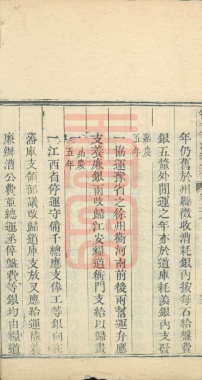 年仍舊於州縣徵收漕耗銀內按每石給盤費
銀五釐外開運之年亦於道庫耗羨銀內支發
嘉慶
五年
一協運豫省之徐州衛河南前後兩幫運弁應
支養廉銀兩改歸江安糧道衙門支給以歸畫
一嘉慶
五年
一江西省停運守備千總應支俸工等銀向在
藩庫支領部議改歸道庫支放又應給運
廉辦漕公費並總運丞倅盤費等銀均由糧道